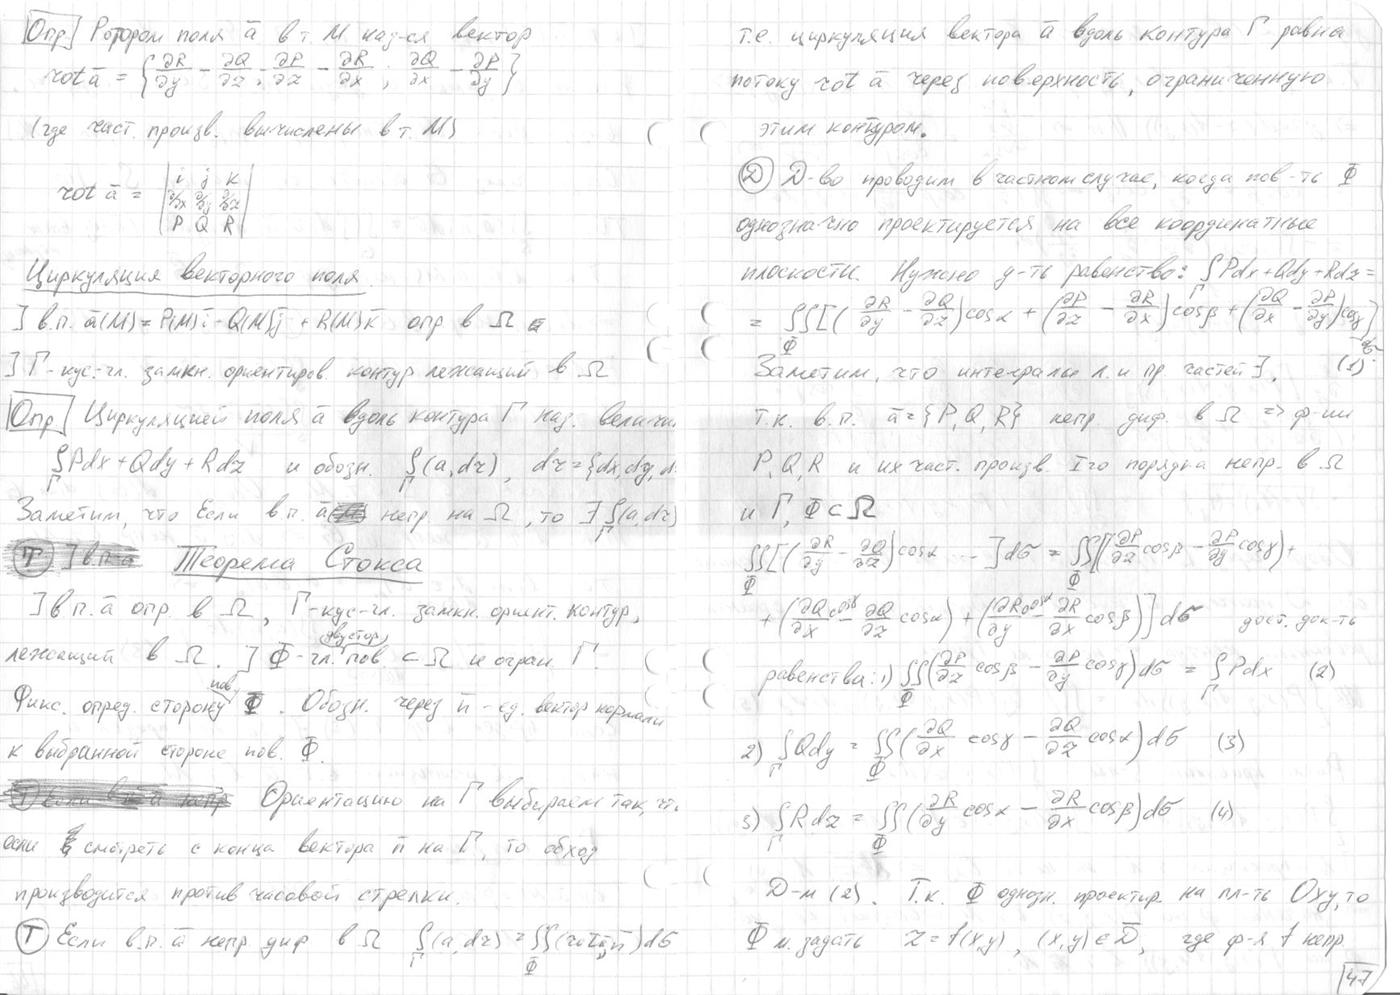 Опр Ротором поля a̅ в т. M наз-ся вектор
rot a̅ = {∂R/∂y − ∂Q/∂z ; ∂P/∂z − ∂R/∂x ; ∂Q/∂x − ∂P/∂y}
(где част. произв. вычислены в т. M)
rot a̅ = | i j k |
| ∂/∂x ∂/∂y ∂/∂z |
| P Q R |
Циркуляция векторного поля
] в.п. a̅(M) = P(M)i̅ - Q(M)j̅ + R(M)k̅ опр в Ω
] Γ-кус-гл. замкн. ориентиров. контур лежащий в Ω
Опр Циркуляцией поля a̅ вдоль контура Γ наз. величин
∫_Γ Pdx + Qdy + Rdz и обозн. ∫_Γ (a, dr) , dr = {dx, dy, d
Заметим, что Если в.п. a̅ непр на Ω, то ∃ ∫_Γ (a, dr)
Т ] в.п. a Теорема Стокса
] в п. a̅ опр. в Ω , Γ-кус-гл. замкн. ориент. контур,
лежащий в Ω . ] Φ-гл. двустор. пов. ⊂ Ω и огран Γ.
Фикс. опред. сторону пов. Φ . Обозн. через n̅ - ед. вектор нормали
к выбранной стороне пов. Φ.
Т Если в.п. a непр Ориентацию на Γ выбираем так, чт
если смотреть с конца вектора n̅ на Γ, то обход
производится против часовой стрелки.
Т Если в.п. a̅ непр диф в Ω ∫_Γ (a, dr) = ∫∫_Φ (rot a̅, n̅) dσ
т.е. циркуляция вектора a̅ вдоль контура Γ равна
потоку rot a̅ через поверхность, ограниченную
этим контуром.
Д Д-во проводим в частном случае, когда пов-ть Φ
однозначно проектируется на все координатные
плоскости. Нужно д-ть равенство: ∫_Γ Pdx + Qdy + Rdz =
= ∫∫_Φ [(∂R/∂y − ∂Q/∂z) cosα + (∂P/∂z − ∂R/∂x) cosβ + (∂Q/∂x − ∂P/∂y) cosγ] dσ
Заметим, что интегралы л. и пр частей ∃. (1)
т.к. в.п. a̅ = {P, Q, R} непр. диф. в Ω => ф-ии
P, Q, R и их част. произв. I го порядка непр. в Ω
и Γ, Φ ⊂ Ω
∫∫_Φ [(∂R/∂y − ∂Q/∂z) cosα ... ] dσ = ∫∫_Φ [(∂P/∂z cosβ − ∂P/∂y cosγ) +
+ (∂Q/∂x cosγ − ∂Q/∂z cosα) + (∂R/∂y cosα − ∂R/∂x cosβ)] dσ дост. док-ть
равенства: 1) ∫∫_Φ (∂P/∂z cosβ − ∂P/∂y cosγ) dσ = ∫_Γ Pdx (2)
2) ∫_Γ Qdy = ∫∫_Φ (∂Q/∂x cosγ − ∂Q/∂z cosα) dσ (3)
3) ∫_Γ Rdz = ∫∫_Φ (∂R/∂y cosα − ∂R/∂x cosβ) dσ (4)
Д-м (2). Т.к. Φ однозн. проектир. на пл-ть Oxy, то
Φ м. задать z = f(x,y) , (x,y) ∈ D̅, где ф-я f непр
47